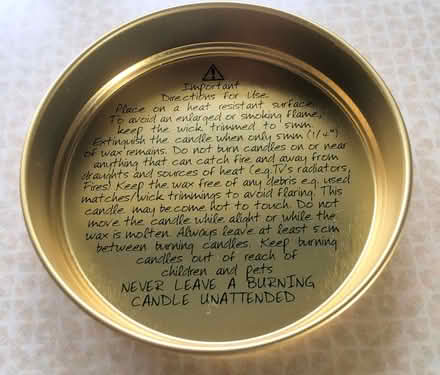 Important
Directions for Use
Place on a heat resistant surface.
To avoid an enlarged or smoking flame,
keep the wick trimmed to 5mm.
Extinguish the candle when only 5mm (1/4")
of wax remains. Do not burn candles on or near
anything that can catch fire and away from
draughts and sources of heat (e.g.Tv's radiators,
Fires) Keep the wax free of any debris e.g. used
matches/wick trimming to avoid flaring. This
candle may become hot to touch. Do not
move the candle while alight or while the
wax is molten. Always leave at least 5cm
between burning candles. Keep burning
candles out of reach of
children and pets
NEVER LEAVE A BURNING
CANDLE UNATTENDED